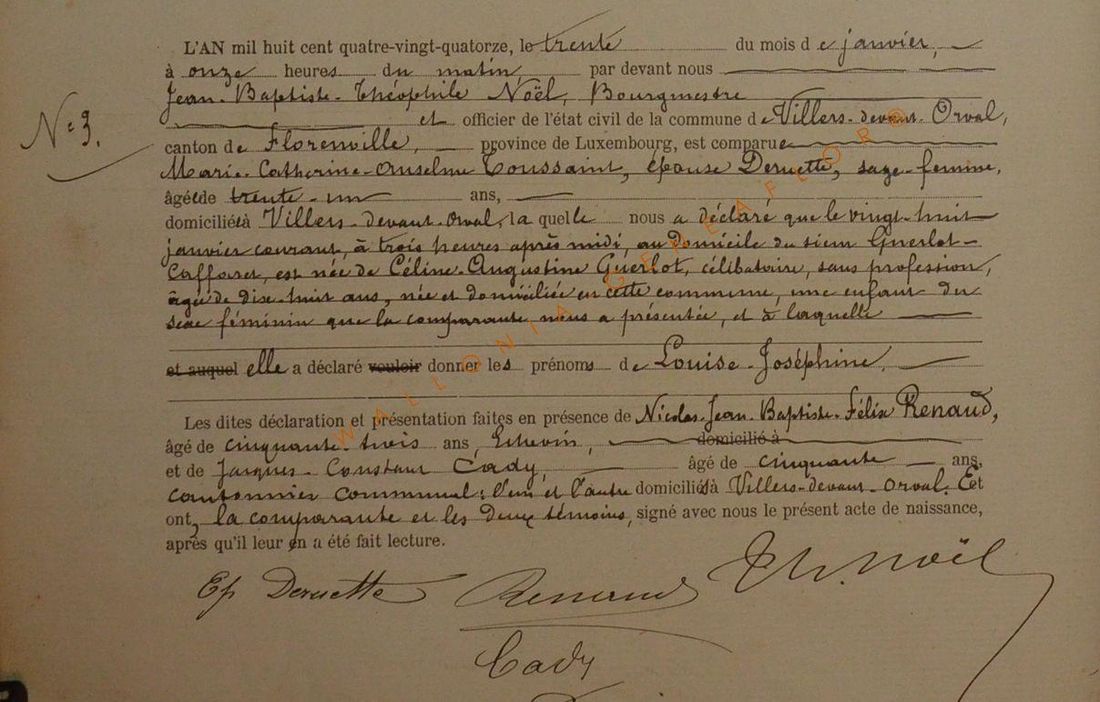 L'AN mil huit cent quatre-vingt-quatorze, le trente du mois de janvier,
à onze heures du matin, par devant nous
Jean-Baptiste-Théophile Noël, Bourgmestre
N° 3.
et officier de l'état civil de la commune de Villers-devant-Orval,
canton de Florenville, province de Luxembourg, est comparue
Marie-Catherine-Anselme Toussaint, épouse Deruette, sage-femme,
âgée de trente-un ans,
domiciliée à Villers-devant-Orval, la quelle nous a déclaré que le vingt-huit
janvier courant, à trois heures après midi, au domicile du sieur Guerlot-
est née de Céline-Augustine Guerlot, célibataire, sans profession,
âgée de dix-huit ans, née et domiciliée en cette commune, une enfant du
sexe féminin que la comparante nous a présentée, et à laquelle
et auquel elle a déclaré vouloir donner les prénoms de Louise-Joséphine,
Les dites déclaration et présentation faites en présence de Nicolas-Jean-Baptiste-Félix Renaud,
âgé de cinquante-trois ans, Echevin, domicilié à
et de Jacques-Constant Cady âgé de cinquante ans,
cantonnier communal; l'un et l'autre domiciliés à Villers-devant-Orval. Et
ont, la comparante et les deux témoins, signé avec nous le présent acte de naissance,
après qu'il leur en a été fait lecture.
Ep Deruette Renaud Th. Noël
Cady
WALLONIA GENEAFLORE